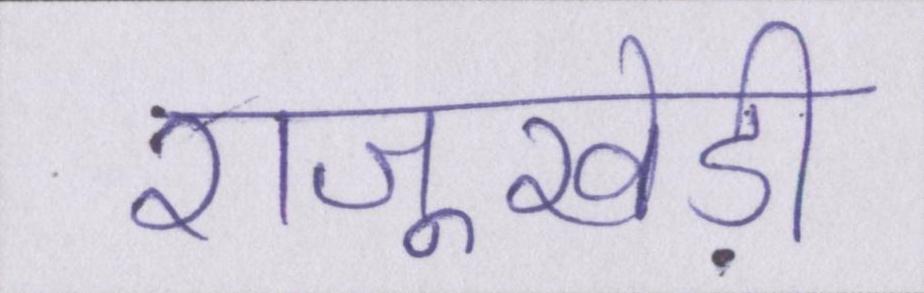 राजूखेड़ी